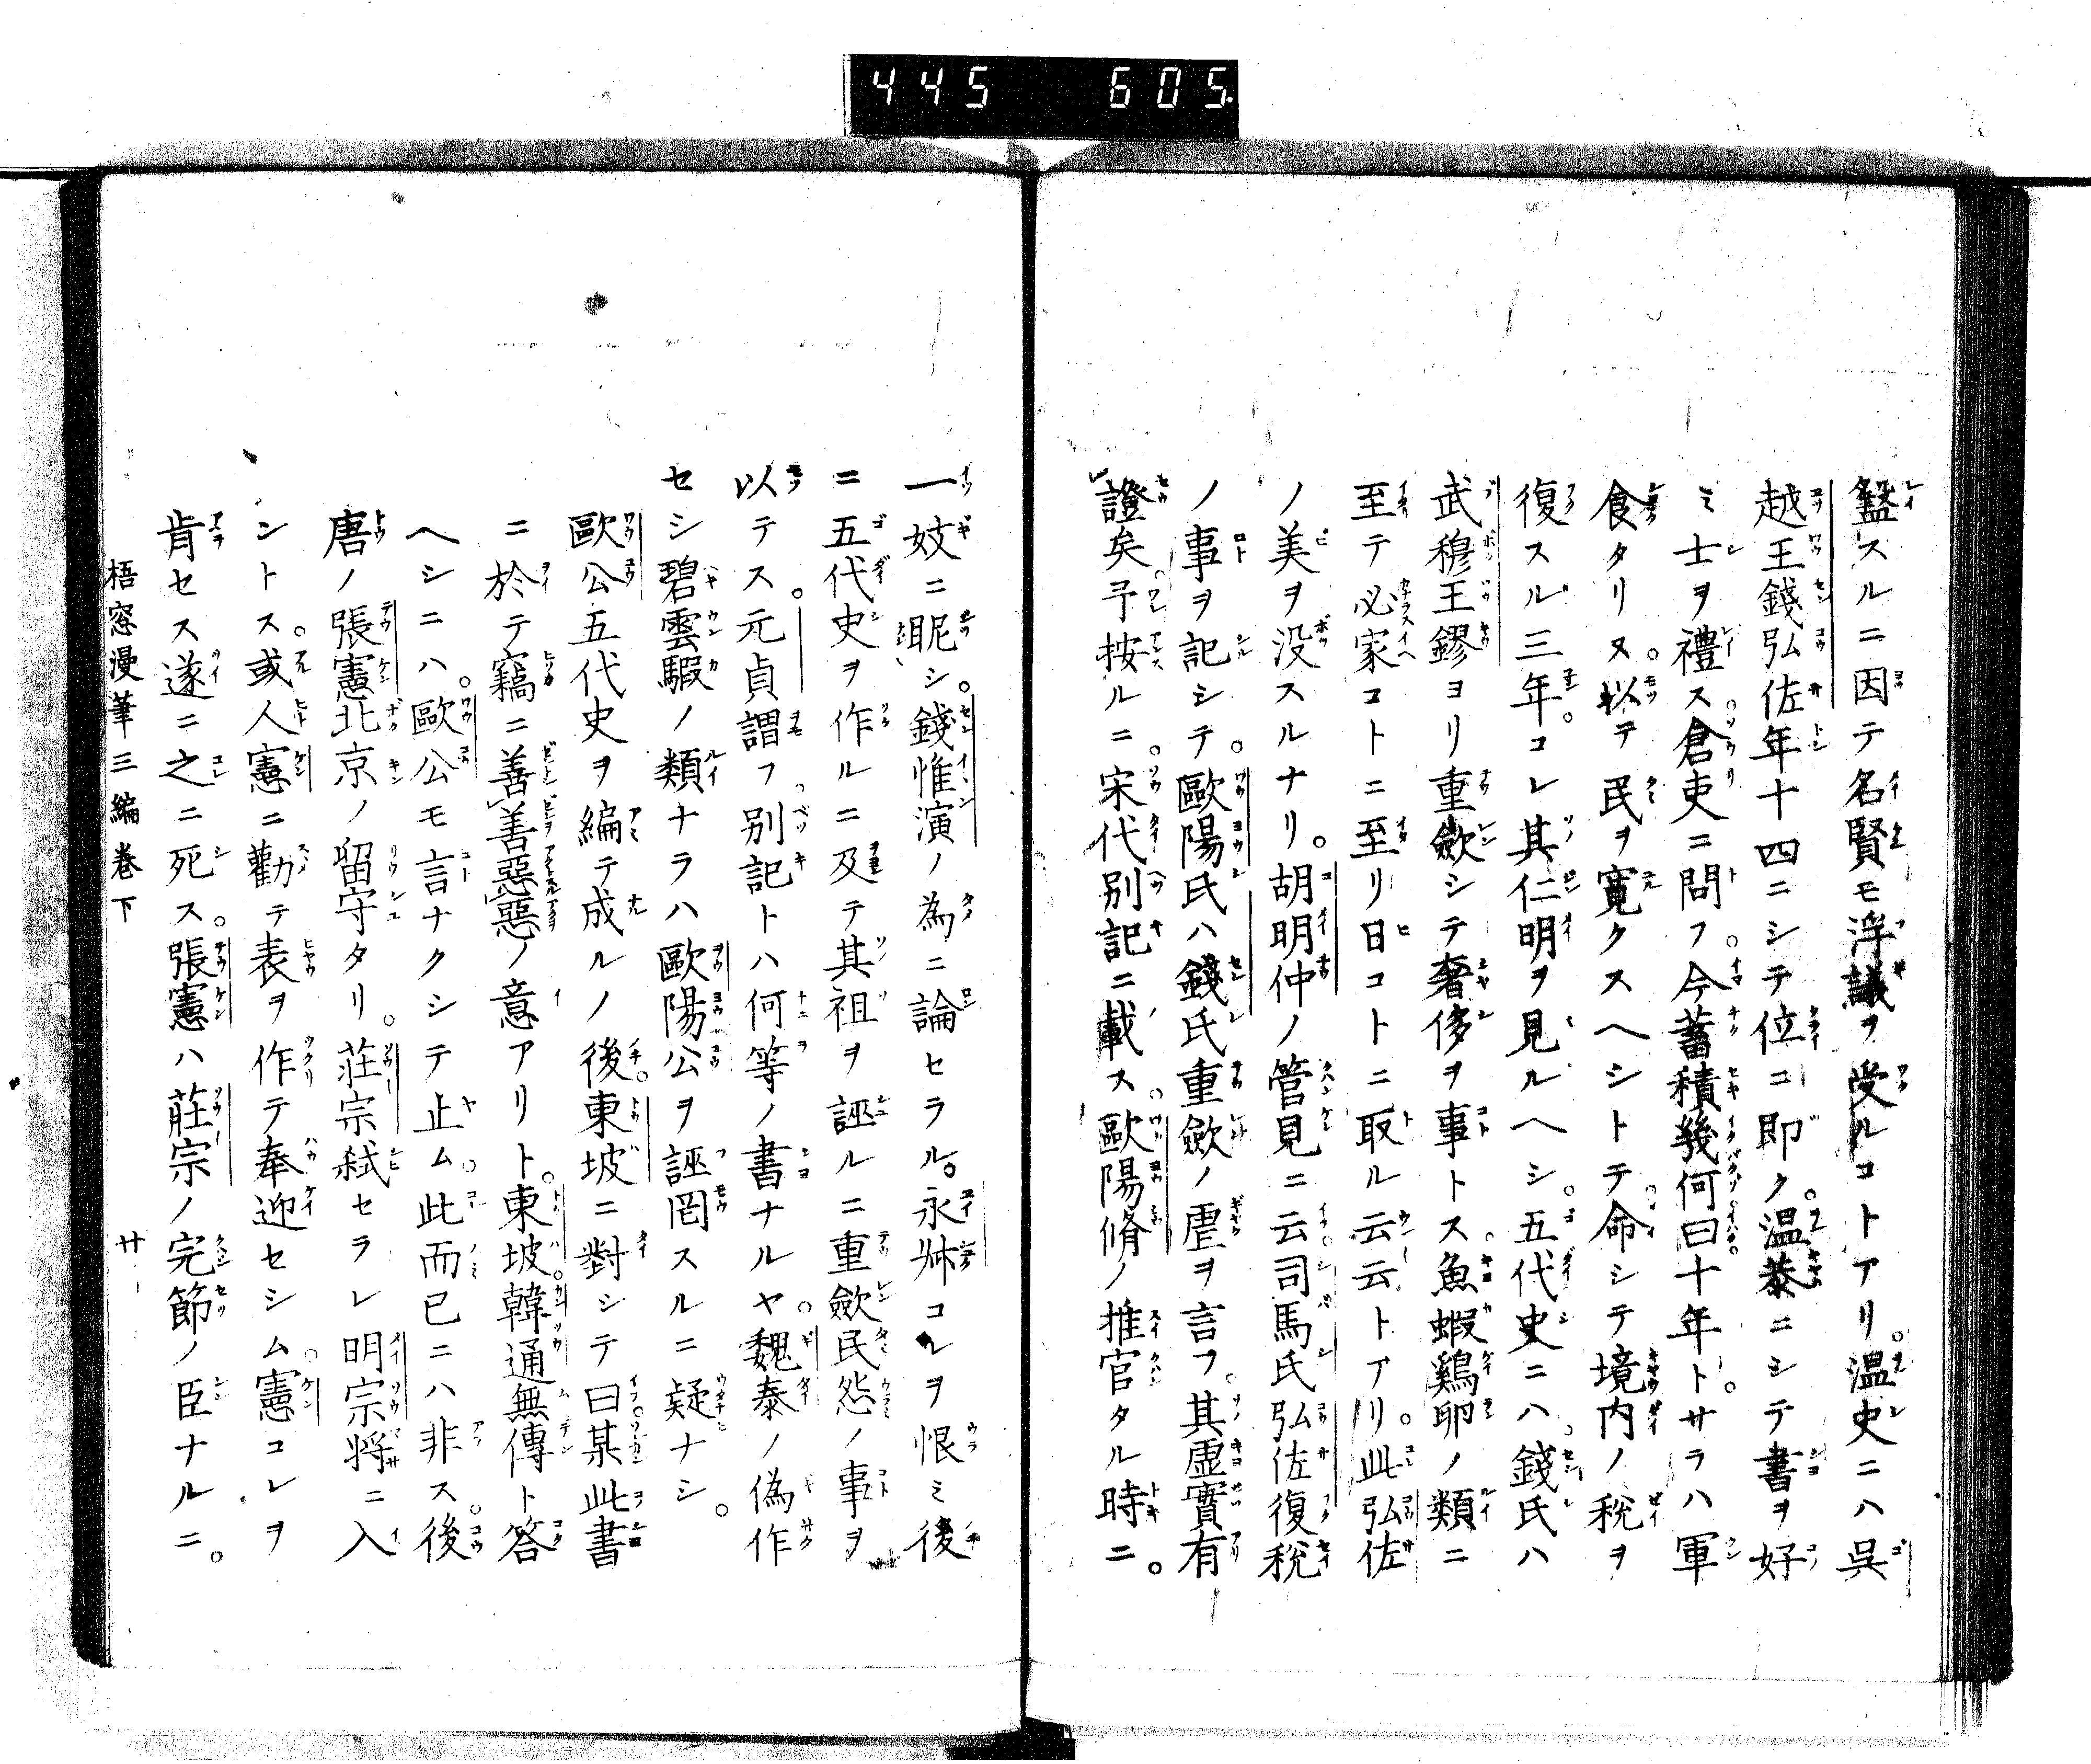 445 605.
盭スルニ因テ名賢モ浮議ヲ受ルコトアリ。温史ニハ呉
越王錢弘佐年十四ニシテ位ニ即ク。温恭ニシテ書ヲ好
ミ士ヲ禮ス倉吏ニ問フ。今蓄積幾何曰十年ト。サラハ軍
食タリヌ。以テ民ヲ寛クスヘシトテ。命シテ境内ノ税ヲ
復スル三年。コレ其仁明ヲ見ルヘシ。五代史ニハ。錢氏ハ
武穆王鏐ヨリ重歛シテ奢侈ヲ事トス。魚蝦鷄卵ノ類ニ
至テ必家コトニ至リ日コトニ取ル云云トアリ。此弘佐
ノ美ヲ没スルナリ。胡明仲ノ管見ニ云。司馬氏弘佐復税
ノ事ヲ記シテ。歐陽氏ハ錢氏重歛ノ虐ヲ言フ。其虚實有
證矣。予按ルニ。宋代別記ニ載ス。歐陽脩ノ推官タル時ニ。
一妓ニ昵シ。錢惟演ノ為ニ論セラル。永叔コレヲ恨ミ後
ニ五代史ヲ作ルニ及テ其祖ヲ誣ルニ重歛民怨ノ事ヲ
以テス。元貞謂フ。別記トハ何等ノ書ナルヤ。魏泰ノ偽作
セシ碧雲騢ノ類ナラハ歐陽公ヲ誣罔スルニ疑ナシ。
歐公五代史ヲ編テ成ルノ後。東坡ニ對シテ曰。某此書
ニ於テ竊ニ善善惡惡ノ意アリト。東坡。韓通無傳ト答
ヘシニハ。歐公モ言ナクシテ止ム。此而已ニハ非ス。後
唐ノ張憲北京ノ留守タリ。荘宗弑セラレ明宗将ニ入
ントス。或人憲ニ勸テ表ヲ作テ奉迎セシム。憲コレヲ
肯セス遂ニ之ニ死ス。張憲ハ莊宗ノ完節ノ臣ナルニ。
梧窓漫筆三編巻下 廿一